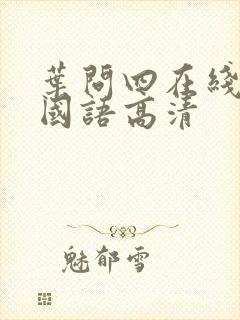 葉問四在綫
國語高清
魅郁雪